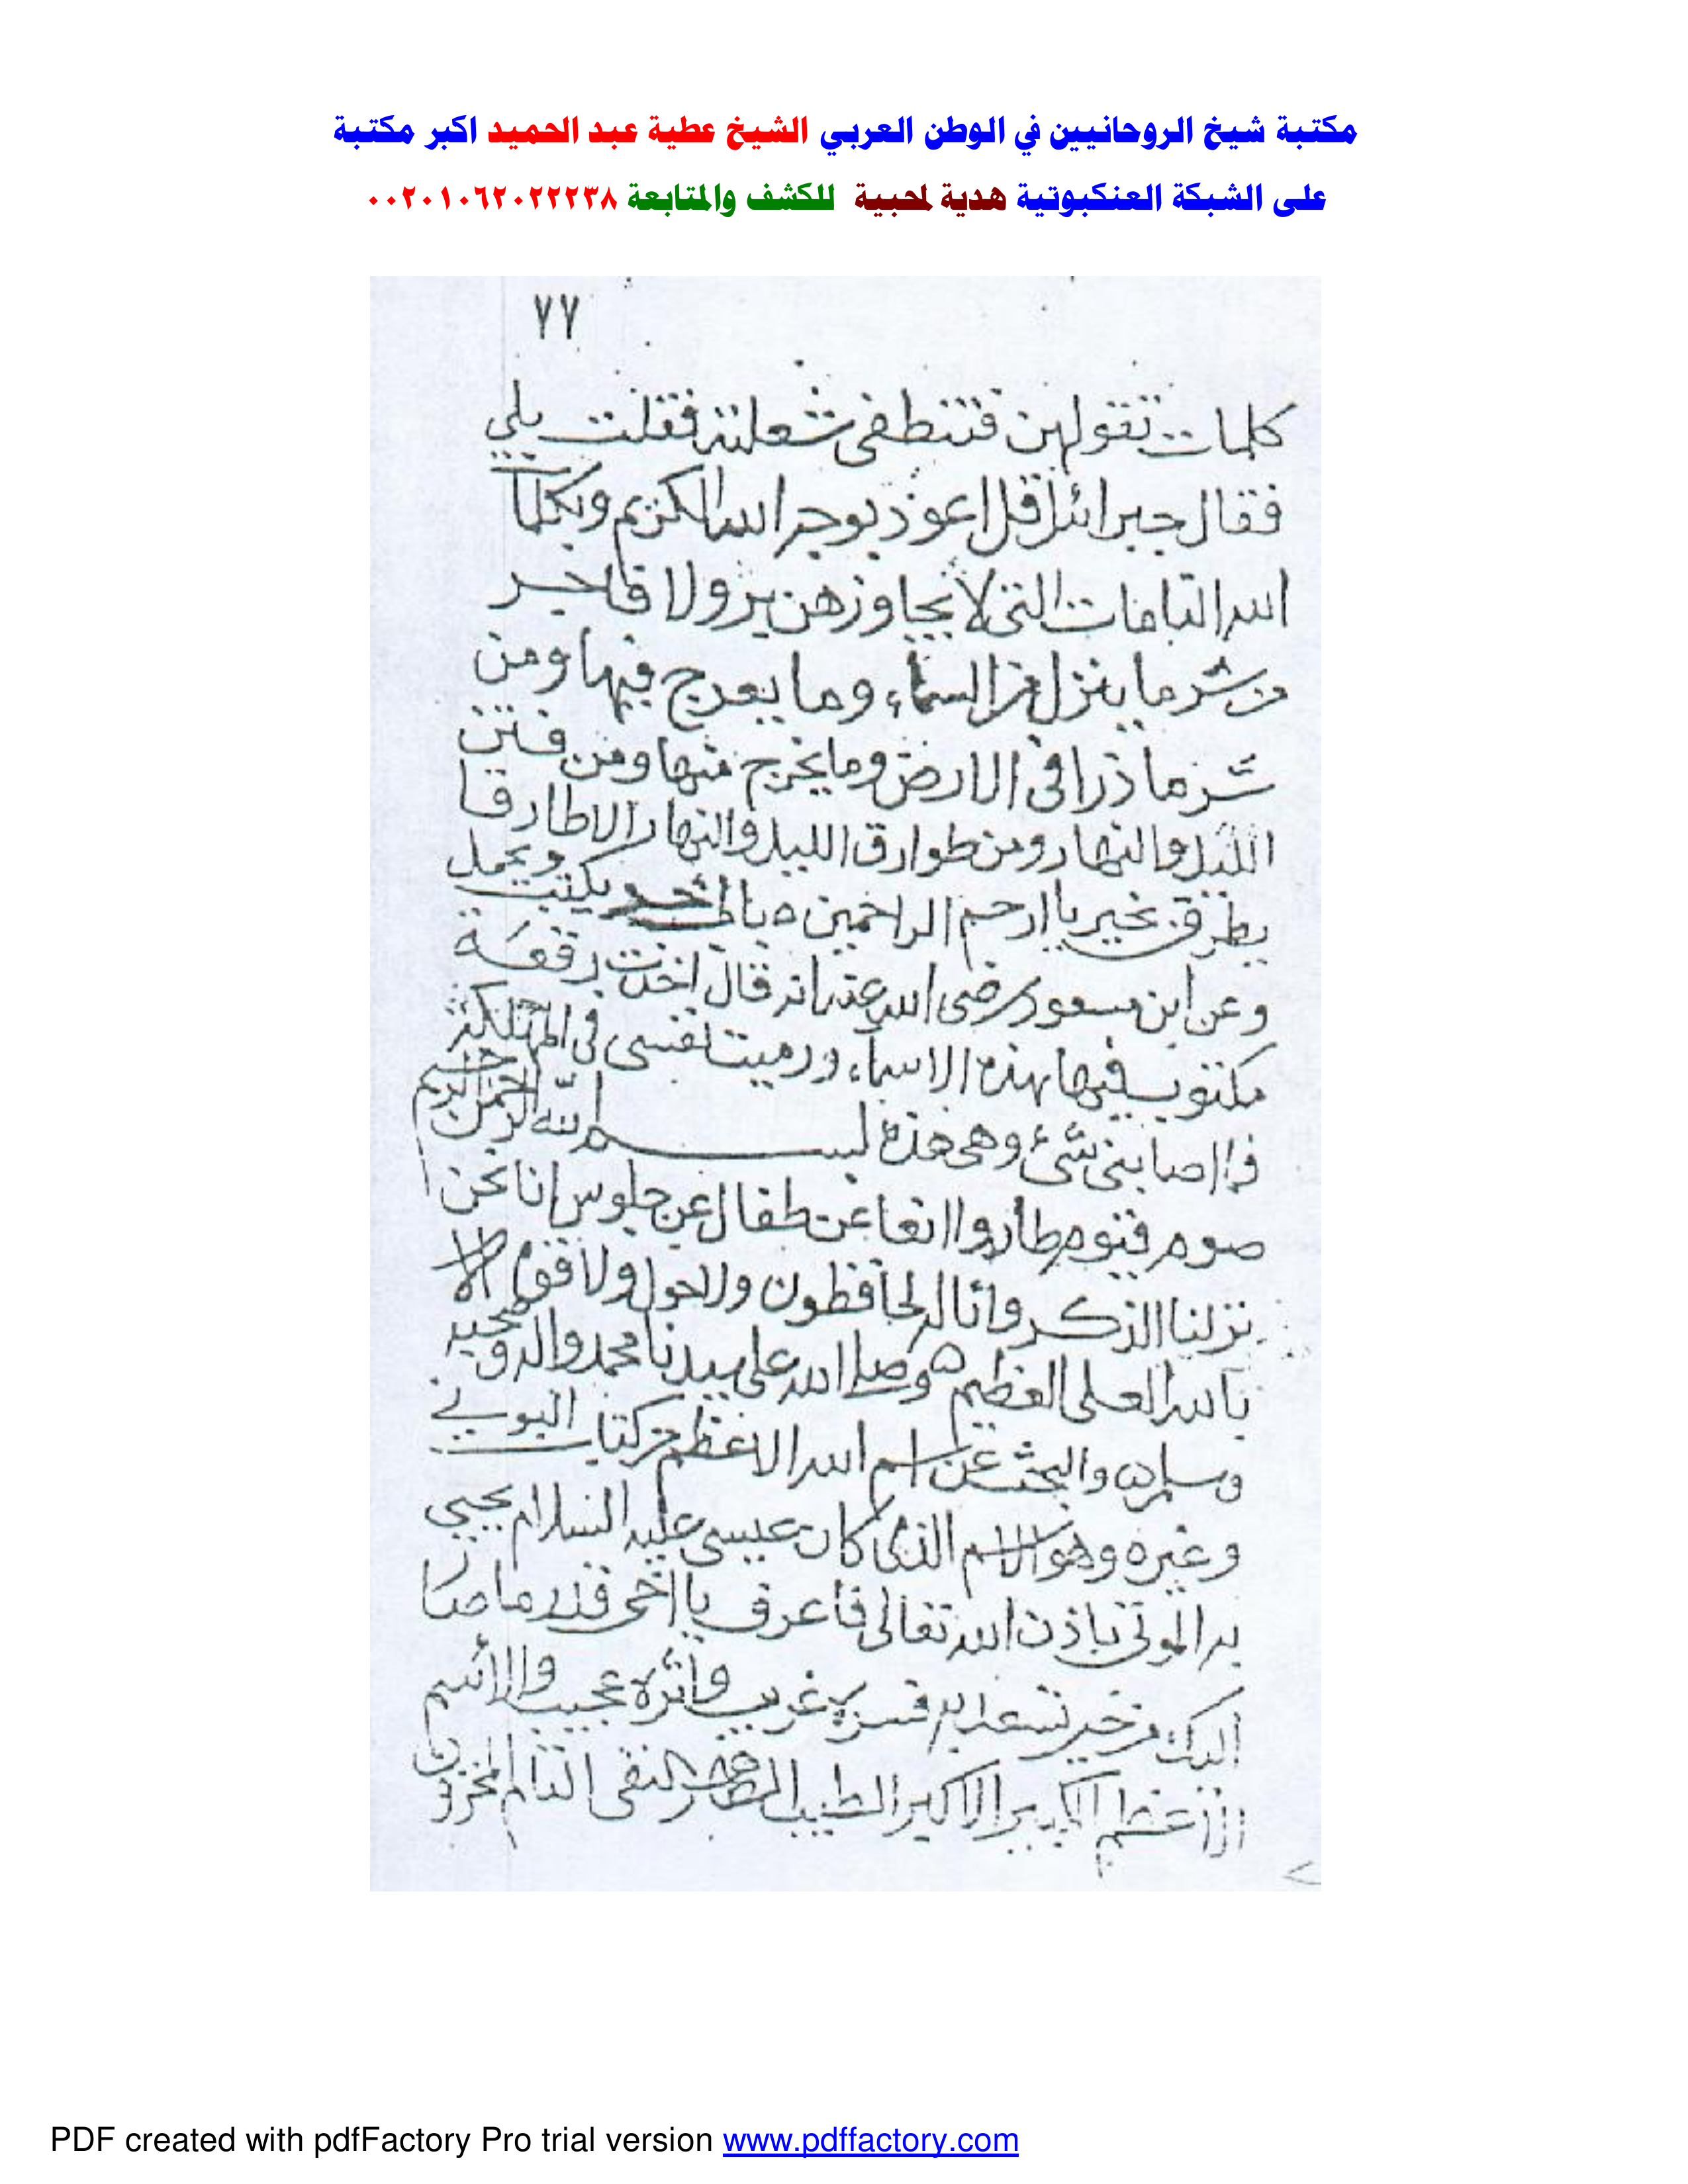 مكتبة شيخ الروحانيين في الوطن العربي الشيخ عطية عبد الحميد اكبر مكتبة
على الشبكة العنكبوتية هدية لمحبية للكشف والمتابعة ٠٠٢٠١٠٦٢٠٢٢٢٣٨
٧٧
كلمات تقولهن فتنطفى شعلته فقلت بلي
فقال جبرائل قل اعوذ بوجه الله الكريم وبكلمات
الله التامات التى لا يجاوزهن بر ولا فاجر
من شر ما ينزل من السماء وما يعرج فيها ومن
شر ما ذرا فى الارض وما يخرج منها ومن فتن
الليل والنهار ومن طوارق الليل والنهار الا طارقا
يطرق بخير يا ارحم الراحمين ه يكتب ويحمل
وعن ابن مسعود رضى الله عنه انه قال اخذت رقعة
مكتوب فيها بهذه الاسماء ورميت نفسى فى
فما اصابنى شئ وهى هذه بسم الله الرحمن الرحيم
صوم فيوم عن جلوس انا نحن
نزلنا الذكر وانا له لحافظون ولا حول ولا قوة الا
بالله العلى العظيم ه وصلى الله على سيدنا محمد واله وصحبه
وسلم ه والبحث عن اسم الله الاعظم من كتاب البوني
وغيره وهو الاسم الذى كان عيسى عليه السلام يحيي
به الموتى باذن الله تعالى فاعرف يا اخى قدر ما صار
اليك من خير تسعد به فسره غريب واثره عجيب والاسم
الاعظم الكبير الاكبر الطيب الطاهر النقى التام المخزون
PDF created with pdfFactory Pro trial version www.pdffactory.com